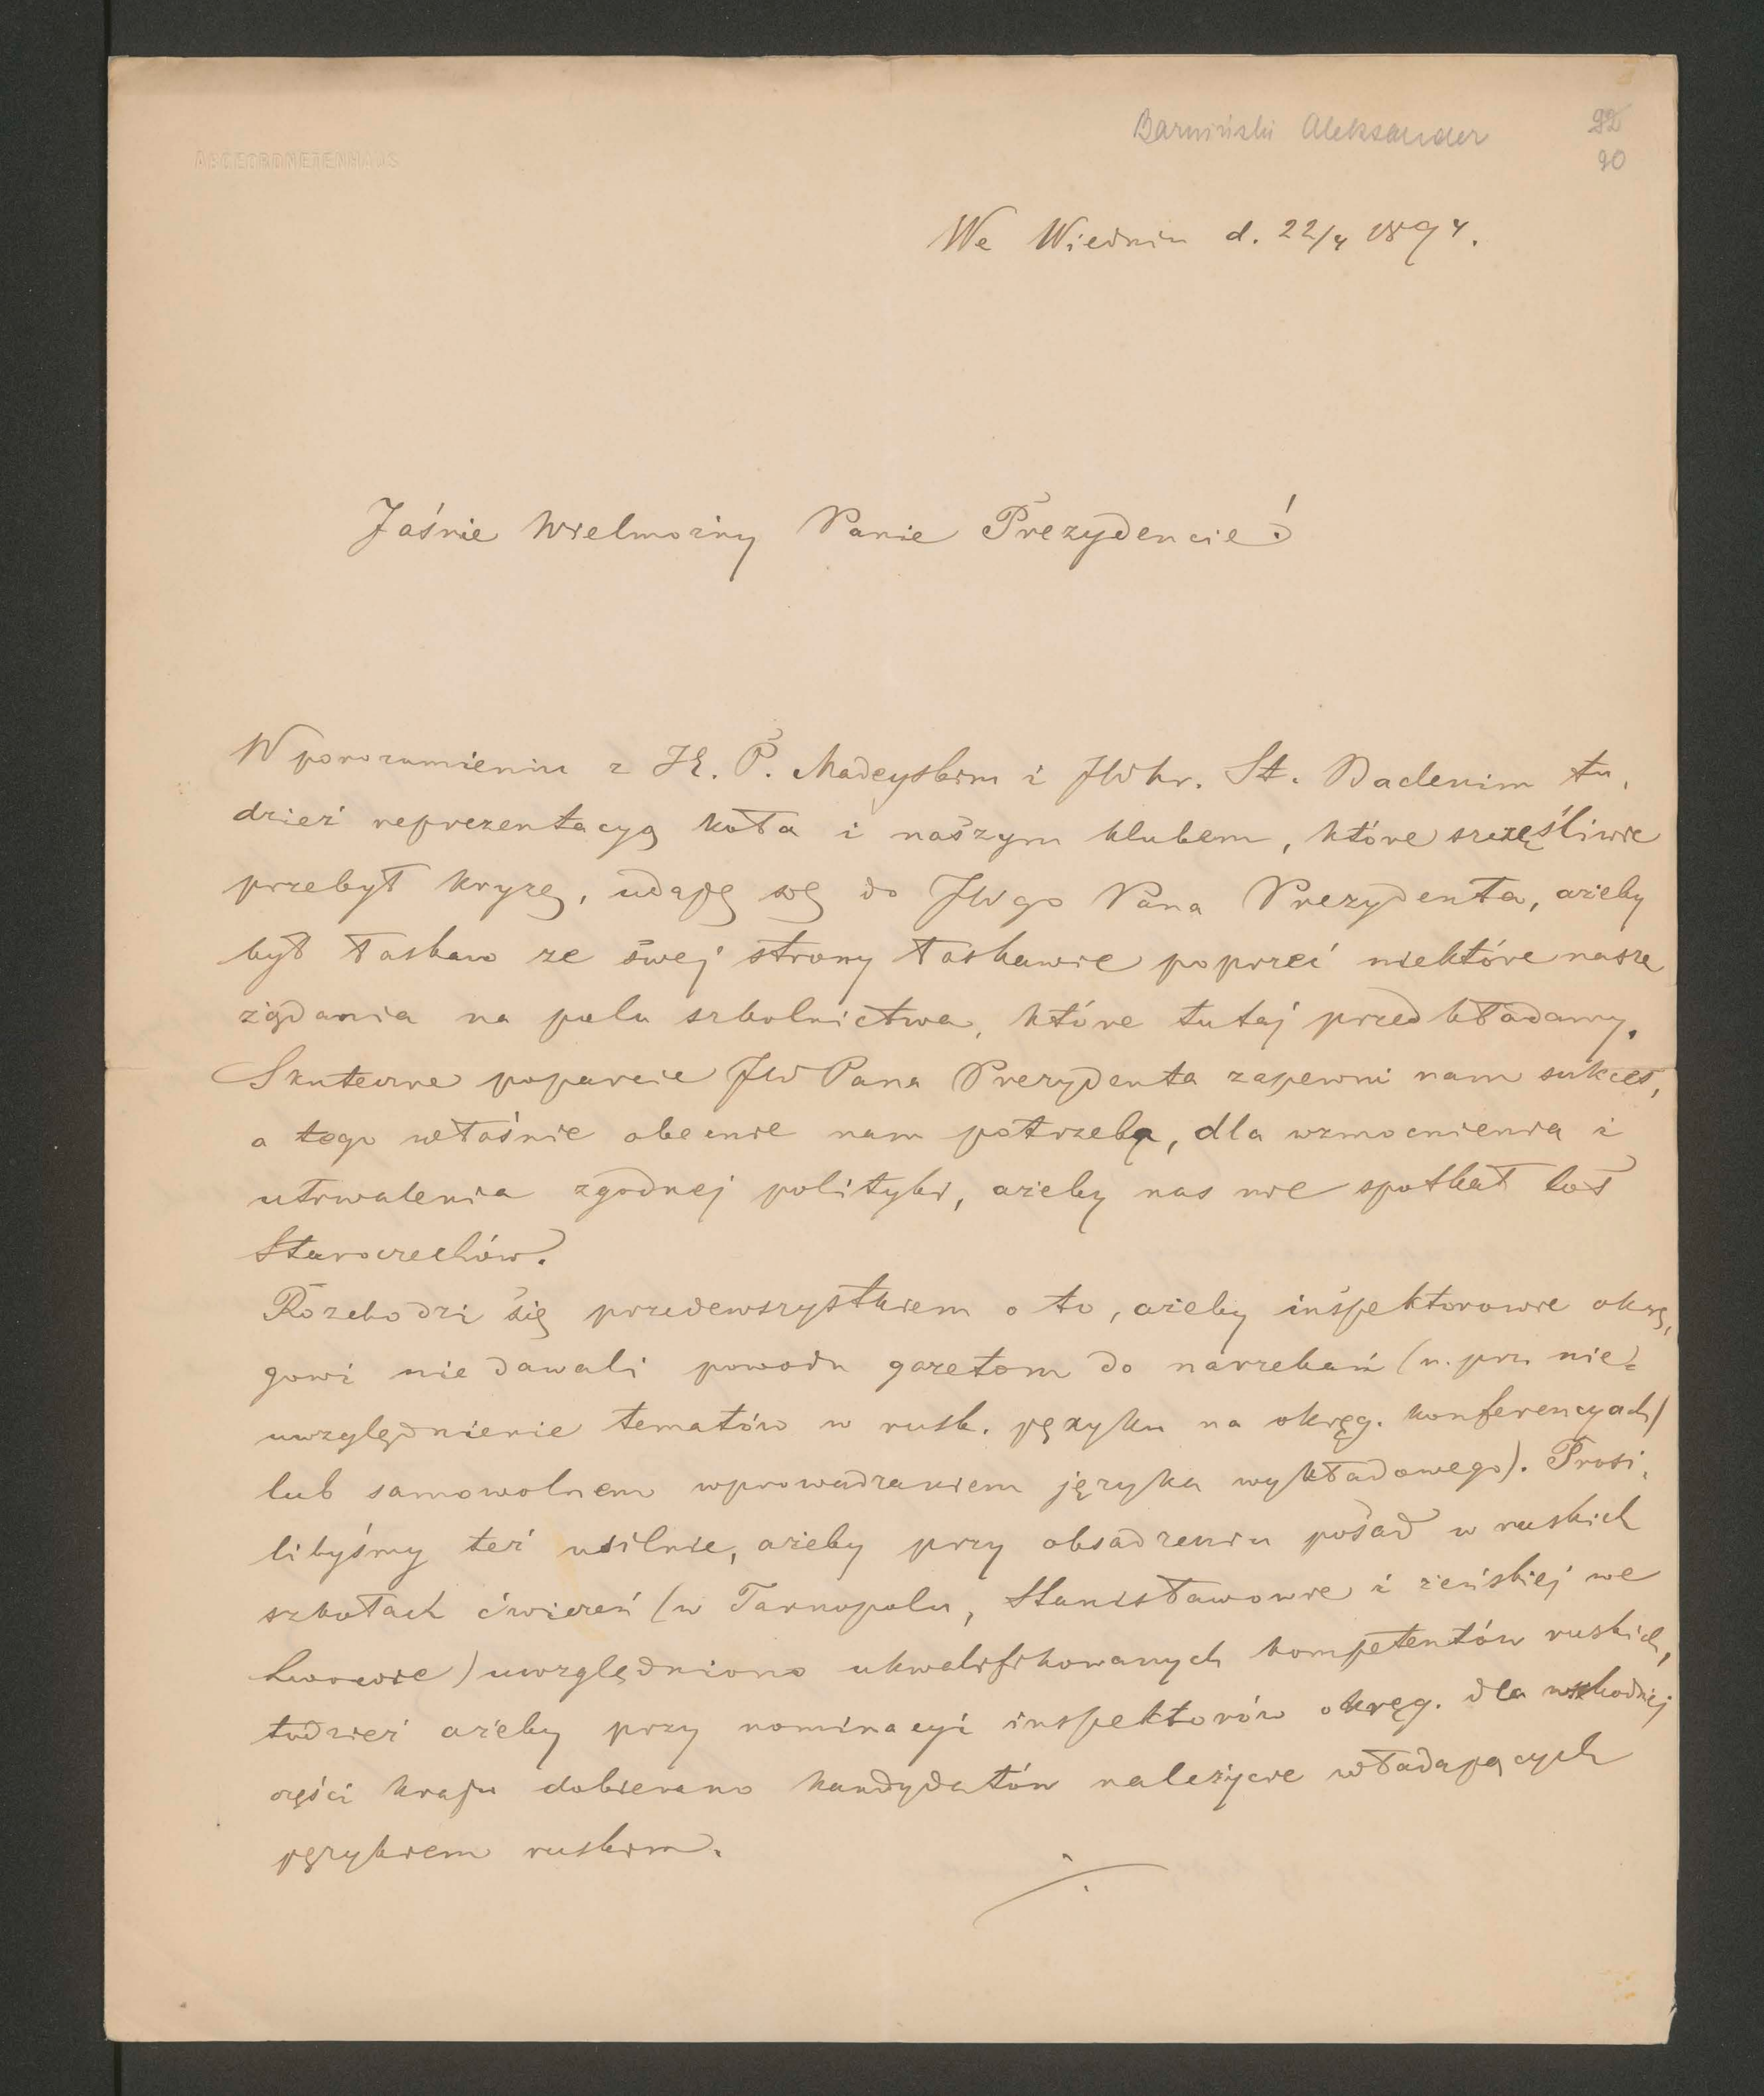 Barwiński Aleksander
92
90
ABGEORDNETENHAUS
We Wiedniu d. 22/4 1894.
Jaśnie Wielmożny Panie Prezydencie!
W porozumieniu z JE. P. Madeyskim i JWhr. St. Badenim tu,
dzież reprezentacyą koła i naszym klubem, które szczęśliwie
przebył kryzę, udaję się do JWgo Pana Prezydenta, ażeby
był łaskaw ze swej strony łaskawie poprzeć niektóre nasze
żądania na polu szkolnictwa, które tutaj przedkładamy.
Skuteczne poparcie JWPana Prezydenta zapewni nam sukces,
a tego właśnie obecnie nam potrzeba, dla wzmocnienia i
utrwalenia zgodnej polityki, ażeby nas nie spotkał los
Staroczechów.
Rozchodzi się przedewszystkiem o to, ażeby inspektorowie okrę,
gowi nie dawali powodu gazetom do narzekań (n. prz. nie=
uwzględnienie tematów w rusk. języku na okręg. konferencyach)
lub samowolnem wprowadzaniem języka wykładowego). Prosi,
libyśmy też usilnie, ażeby przy obsadzeniu posad w ruskich
szkołach ćwiczeń (w Tarnopolu, Stanisławowie i żeńskiej we
Lwowie) uwzględniono ukwalifikowanych kompetentów ruskich,
tudzież ażeby przy nominacyi inspektorów okręg. dla wschodniej
części kraju dobierano kandydatów należycie władających
językiem ruskim.
./.